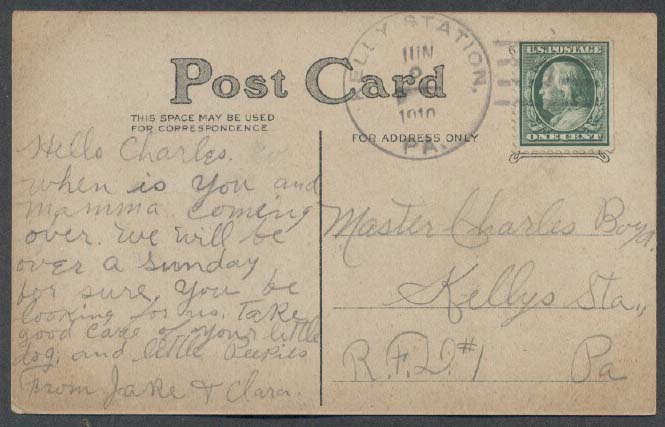 Post Card
THIS SPACE MAY BE USED
FOR CORRESPONDENCE
FOR ADDRESS ONLY
KELLY STATION,
JUN
1910
PA.
U.S. POSTAGE
ONE CENT
Hello Charles.
when is you and
mamma coming
over. We will be
over a Sunday
for sure, you be
looking for us. Take
good care of your little
dog, and little Peepies
From Jake & Clara.
Master Charles Boyd.
Kellys Sta.,
R.F.D. #1 Pa